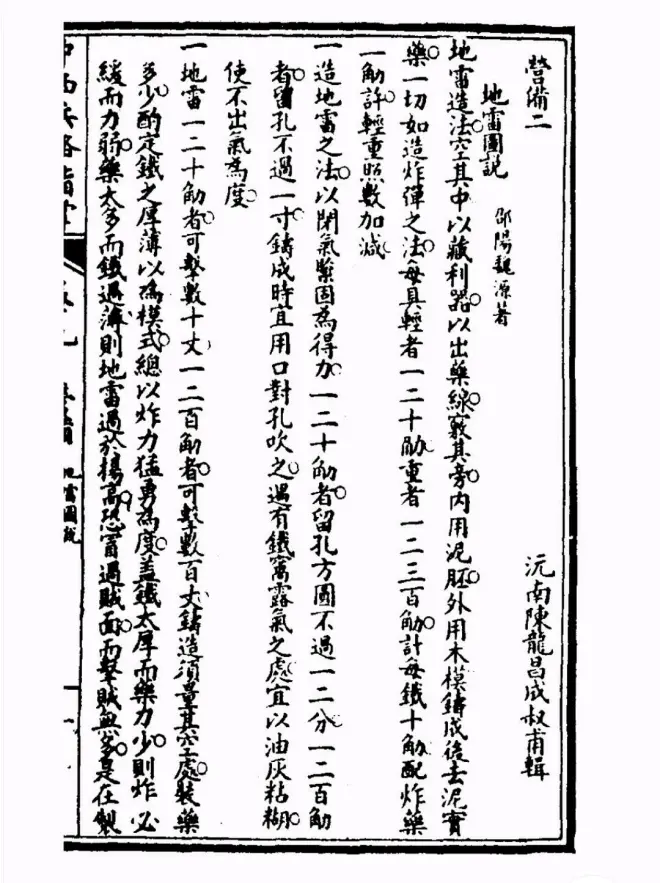 營備二
沅南陳龍昌成叔甫輯
地雷圖說
邵陽魏源著
地雷造法空其中以藏利器以出藥線竅其旁內用泥胚外用木模鑄成後去泥實
藥一切如造炸彈之法每具輕者一二十觔重者一二三百觔計每鐵十觔配炸藥
一觔許輕重照數加減
一造地雷之法以閉氣緊固為得力一二十觔者留孔方圓不過一二分一二百觔
者留孔不過一寸鑄成時宜用口對孔吹之遇有鐵窩露氣之處宜以油灰粘糊
使不出氣為度
一地雷一二十觔者可擊數十丈一二百觔者可擊數百丈鑄造須量其空處裝藥
多少酌定鐵之厚薄以為模式總以炸力猛勇為度蓋鐵太厚而藥力少則炸必
緩而力弱藥太多而鐵過薄則地雷過於揚高恐當過賊面而擊賊無多是在製
中西兵略指掌
卷十九
地雷圖說